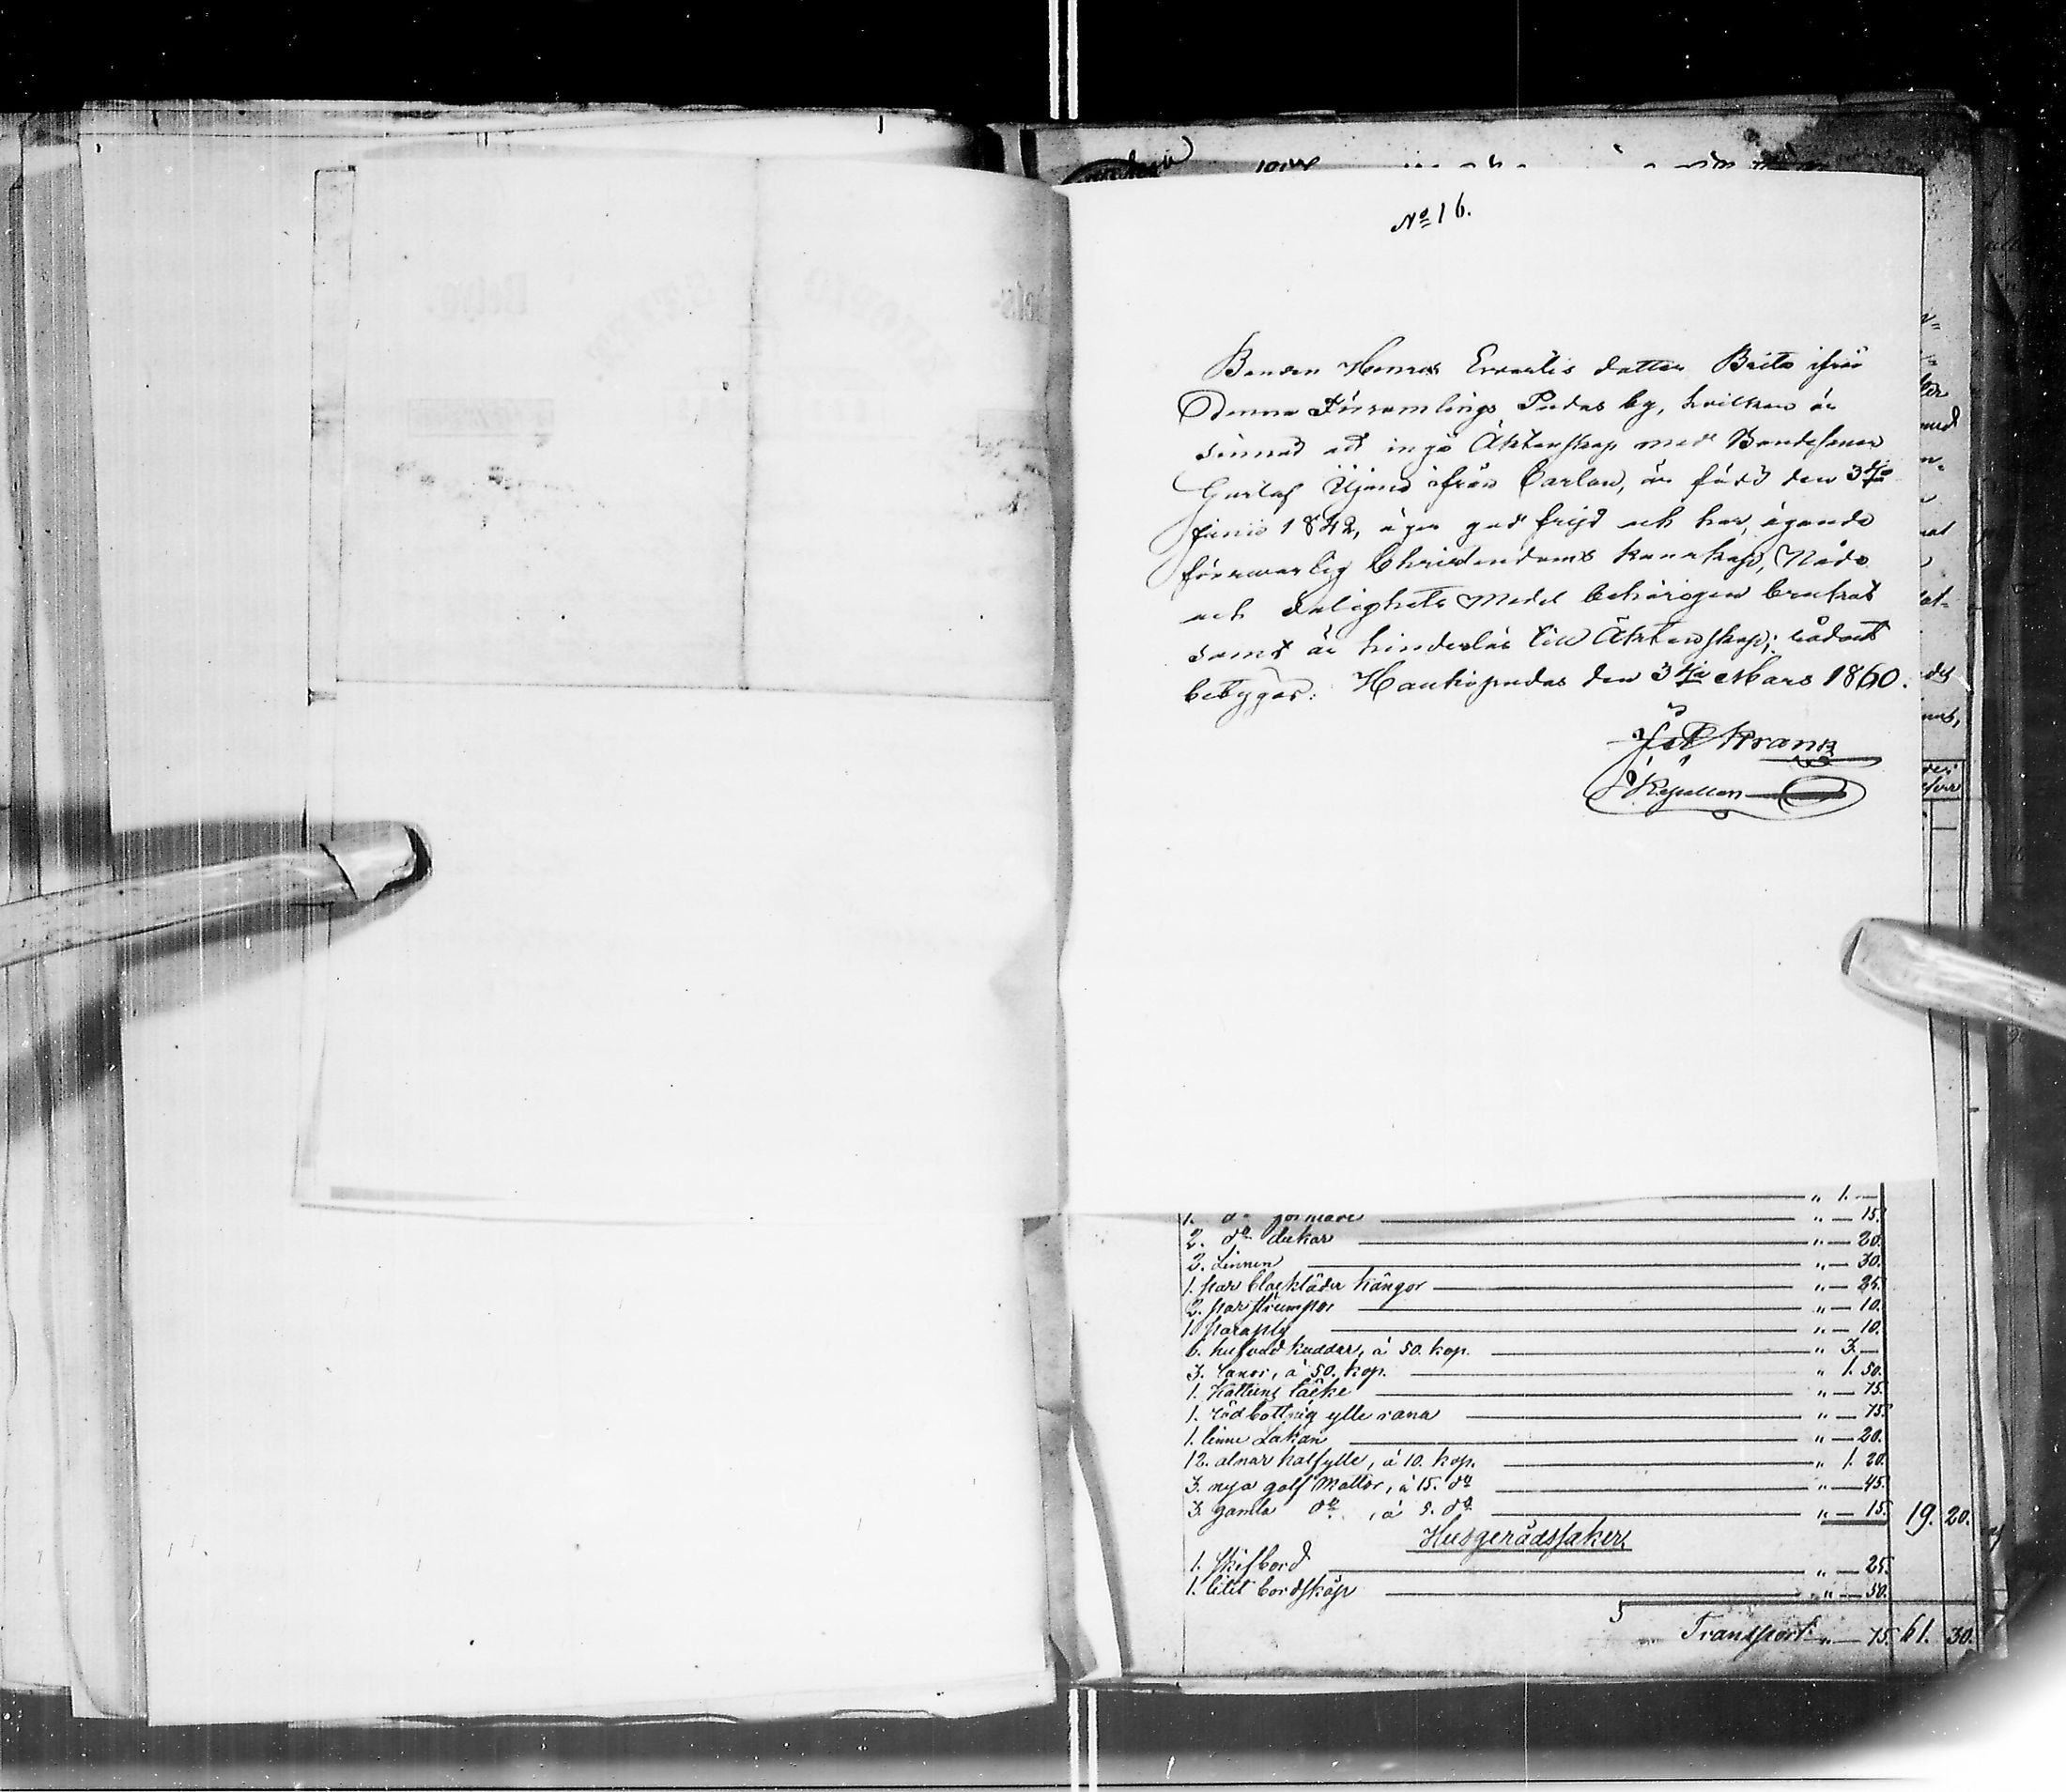 No 16.
Bonden Thomas Ervastis dotter Brita ifrån
denna Församlings Pudas by, hvilken är
sinnad att ingå Äktenskap med Bondesonen
Gustaf ifrån Carlön, är född den 3dje
Junii 1842, äger god frejd och har, ägande
försvarlig Christendoms kunskap, Nåde
och Salighets Medel behörigen brukat
samt är hinderlös till Äktenskap; sådant
betygas. Haukipudas den 3dje Mars 1860.
Kranck
Kapellan
" 1. —
1. do " — 15.
2. do dukar " — 20.
2. Linnen " — 30.
1. par blackläder kängor " — 25.
2. par strumpor " — 10.
1. paraply " — 10.
6. hufvud kuddar, à 50. kop. " 3. —
3. ranor, à 50. kop. " 1. 50.
1. Kattuns täcke " — 75.
1. rödbottnig ylle rana " — 75.
1. linne Lakan " — 20.
12. alnar halfylle, à 10. kop. " 1. 20.
3. nya golf Mattor, à 15. do " — 45.
3. gamla do , à 5. do " — 15. 19. 20.
Husgerådssaker
1. Skifbord " — 25.
1. litet bordskåp " — 50.
Transport " — 75. 61. 30.